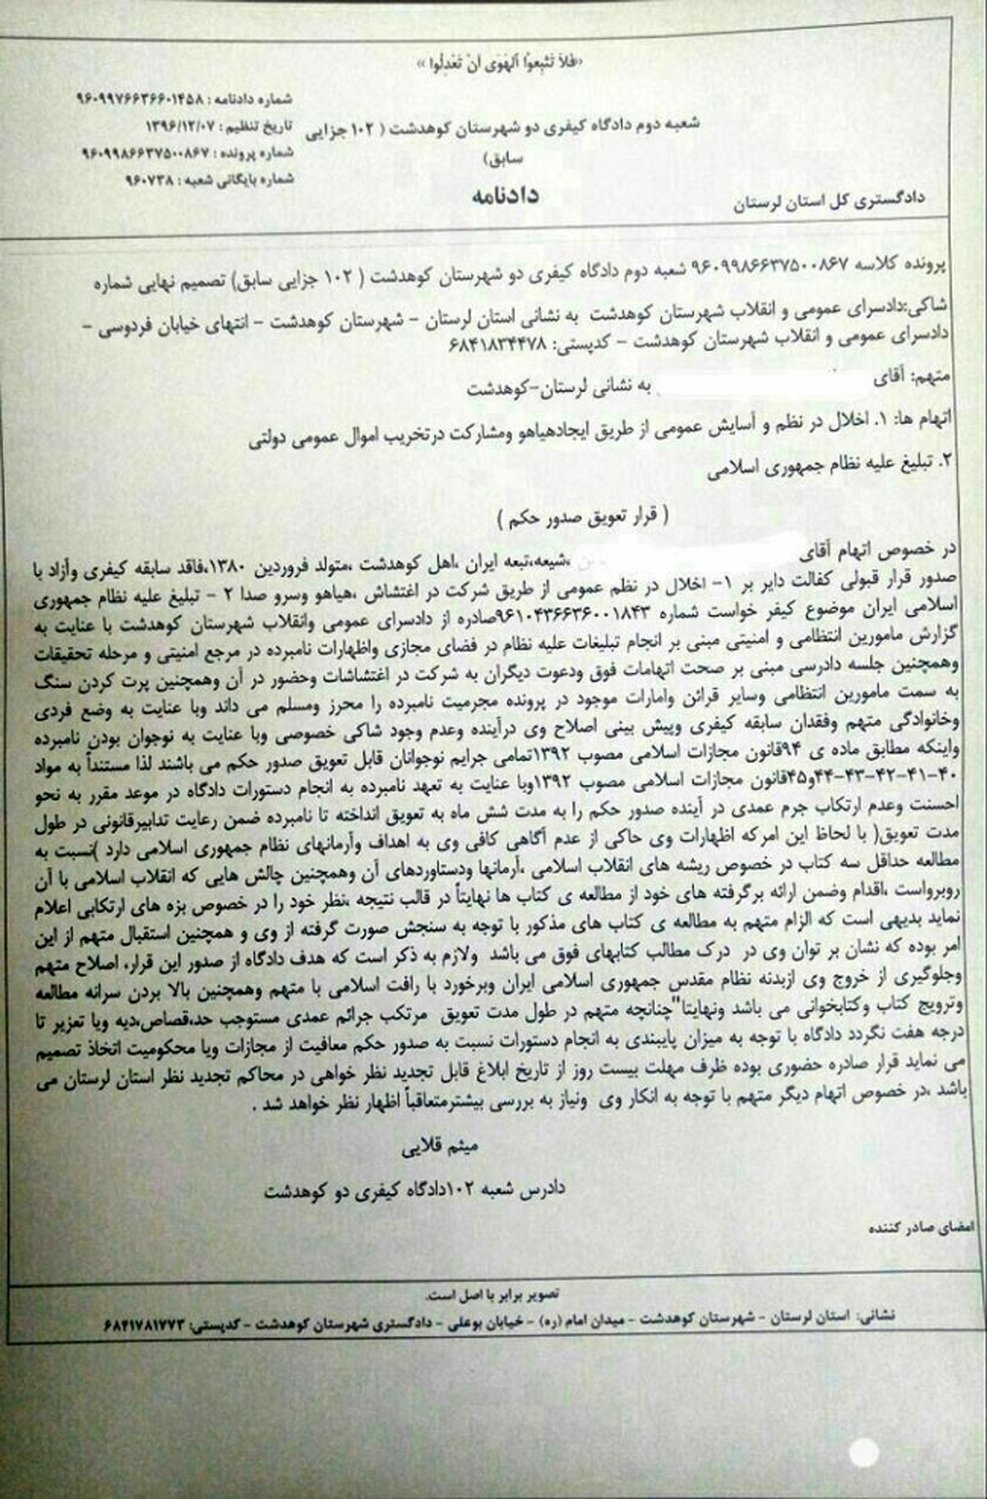 «فَلاَ تَتَّبِعوُا اَلهَوَی اَنْ تَعْدِلُوا»
شماره دادنامه : ۹۶۰۹۹۷۶۶۳۶۶۰۱۴۵۸
تاریخ تنظیم : ۱۳۹۶/۱۲/۰۷
شماره پرونده : ۹۶۰۹۹۸۶۶۳۷۵۰۰۸۶۷
شماره بایگانی شعبه : ۹۶۰۷۳۸
شعبه دوم دادگاه کیفری دو شهرستان کوهدشت ( ۱۰۲ جزایی
سابق)
دادنامه
دادگستری کل استان لرستان
پرونده کلاسه ۹۶۰۹۹۸۶۶۳۷۵۰۰۸۶۷ شعبه دوم دادگاه کیفری دو شهرستان کوهدشت ( ۱۰۲ جزایی سابق) تصمیم نهایی شماره
شاکی:دادسرای عمومی و انقلاب شهرستان کوهدشت به نشانی استان لرستان – شهرستان کوهدشت – انتهای خیابان فردوسی –
دادسرای عمومی و انقلاب شهرستان کوهدشت – کدپستی: ۶۸۴۱۸۳۴۴۷۸
متهم: آقای به نشانی لرستان-کوهدشت
اتهام ها: ۱. اخلال در نظم و آسایش عمومی از طریق ایجادهیاهو ومشارکت درتخریب اموال عمومی دولتی
۲. تبلیغ علیه نظام جمهوری اسلامی
( قرار تعویق صدور حکم )
در خصوص اتهام آقای ،شیعه،تبعه ایران ،اهل کوهدشت ،متولد فروردین ۱۳۸۰،فاقد سابقه کیفری وآزاد با
صدور قرار قبولی کفالت دایر بر ۱- اخلال در نظم عمومی از طریق شرکت در اغتشاش ،هیاهو وسرو صدا ۲ - تبلیغ علیه نظام جمهوری
اسلامی ایران موضوع کیفر خواست شماره ۹۶۱۰۴۳۶۶۳۶۰۰۱۸۴۳صادره از دادسرای عمومی وانقلاب شهرستان کوهدشت با عنایت به
گزارش مامورین انتظامی و امنیتی مبنی بر انجام تبلیغات علیه نظام در فضای مجازی واظهارات نامبرده در مرجع امنیتی و مرحله تحقیقات
وهمچنین جلسه دادرسی مبنی بر صحت اتهامات فوق ودعوت دیگران به شرکت در اغتشاشات وحضور در آن وهمچنین پرت کردن سنگ
به سمت مامورین انتظامی وسایر قرائن وامارات موجود در پرونده مجرمیت نامبرده را محرز ومسلم می داند وبا عنایت به وضع فردی
وخانوادگی متهم وفقدان سابقه کیفری وپیش بینی اصلاح وی درآینده وعدم وجود شاکی خصوصی وبا عنایت به نوجوان بودن نامبرده
واینکه مطابق ماده ی ۹۴قانون مجازات اسلامی مصوب ۱۳۹۲تمامی جرایم نوجوانان قابل تعویق صدور حکم می باشند لذا مستنداً به مواد
۴۰-۴۱-۴۲-۴۳-۴۴و۴۵قانون مجازات اسلامی مصوب ۱۳۹۲وبا عنایت به تعهد نامبرده به انجام دستورات دادگاه در موعد مقرر به نحو
احسنت وعدم ارتکاب جرم عمدی در آینده صدور حکم را به مدت شش ماه به تعویق انداخته تا نامبرده ضمن رعایت تدابیرقانونی در طول
مدت تعویق( با لحاظ این امرکه اظهارات وی حاکی از عدم آگاهی کافی وی به اهداف وآرمانهای نظام جمهوری اسلامی دارد )نسبت به
مطالعه حداقل سه کتاب در خصوص ریشه های انقلاب اسلامی ،آرمانها ودستاوردهای آن وهمچنین چالش هایی که انقلاب اسلامی با آن
روبرواست ،اقدام وضمن ارائه برگرفته های خود از مطالعه ی کتاب ها نهایتاً در قالب نتیجه ،نظر خود را در خصوص بزه های ارتکابی اعلام
نماید بدیهی است که الزام متهم به مطالعه ی کتاب های مذکور با توجه به سنجش صورت گرفته از وی و همچنین استقبال متهم از این
امر بوده که نشان بر توان وی در درک مطالب کتابهای فوق می باشد ولازم به ذکر است که هدف دادگاه از صدور این قرار، اصلاح متهم
وجلوگیری از خروج وی ازبدنه نظام مقدس جمهوری اسلامی ایران وبرخورد با رافت اسلامی با متهم وهمچنین بالا بردن سرانه مطالعه
وترویج کتاب وکتابخوانی می باشد ونهایتا"چنانچه متهم در طول مدت تعویق مرتکب جرائم عمدی مستوجب حد،قصاص،دیه ویا تعزیر تا
درجه هفت نگردد دادگاه با توجه به میزان پایبندی به انجام دستورات نسبت به صدور حکم معافیت از مجازات ویا محکومیت اتخاذ تصمیم
می نماید قرار صادره حضوری بوده ظرف مهلت بیست روز از تاریخ ابلاغ قابل تجدید نظر خواهی در محاکم تجدید نظر استان لرستان می
باشد ،در خصوص اتهام دیگر متهم با توجه به انکار وی ونیاز به بررسی بیشترمتعاقباً اظهار نظر خواهد شد .
میثم قلایی
دادرس شعبه ۱۰۲دادگاه کیفری دو کوهدشت
امضای صادر کننده
تصویر برابر با اصل است.
نشانی: استان لرستان – شهرستان کوهدشت – میدان امام (ره) – خیابان بوعلی – دادگستری شهرستان کوهدشت – کدپستی: ۶۸۴۱۷۸۱۷۷۳